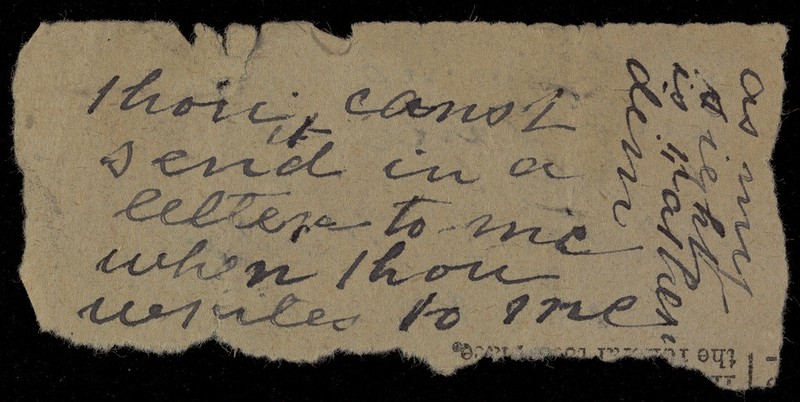 thou canst
send it in a
letter to me
when thou
writes to me
as my
sight
is rather
dim